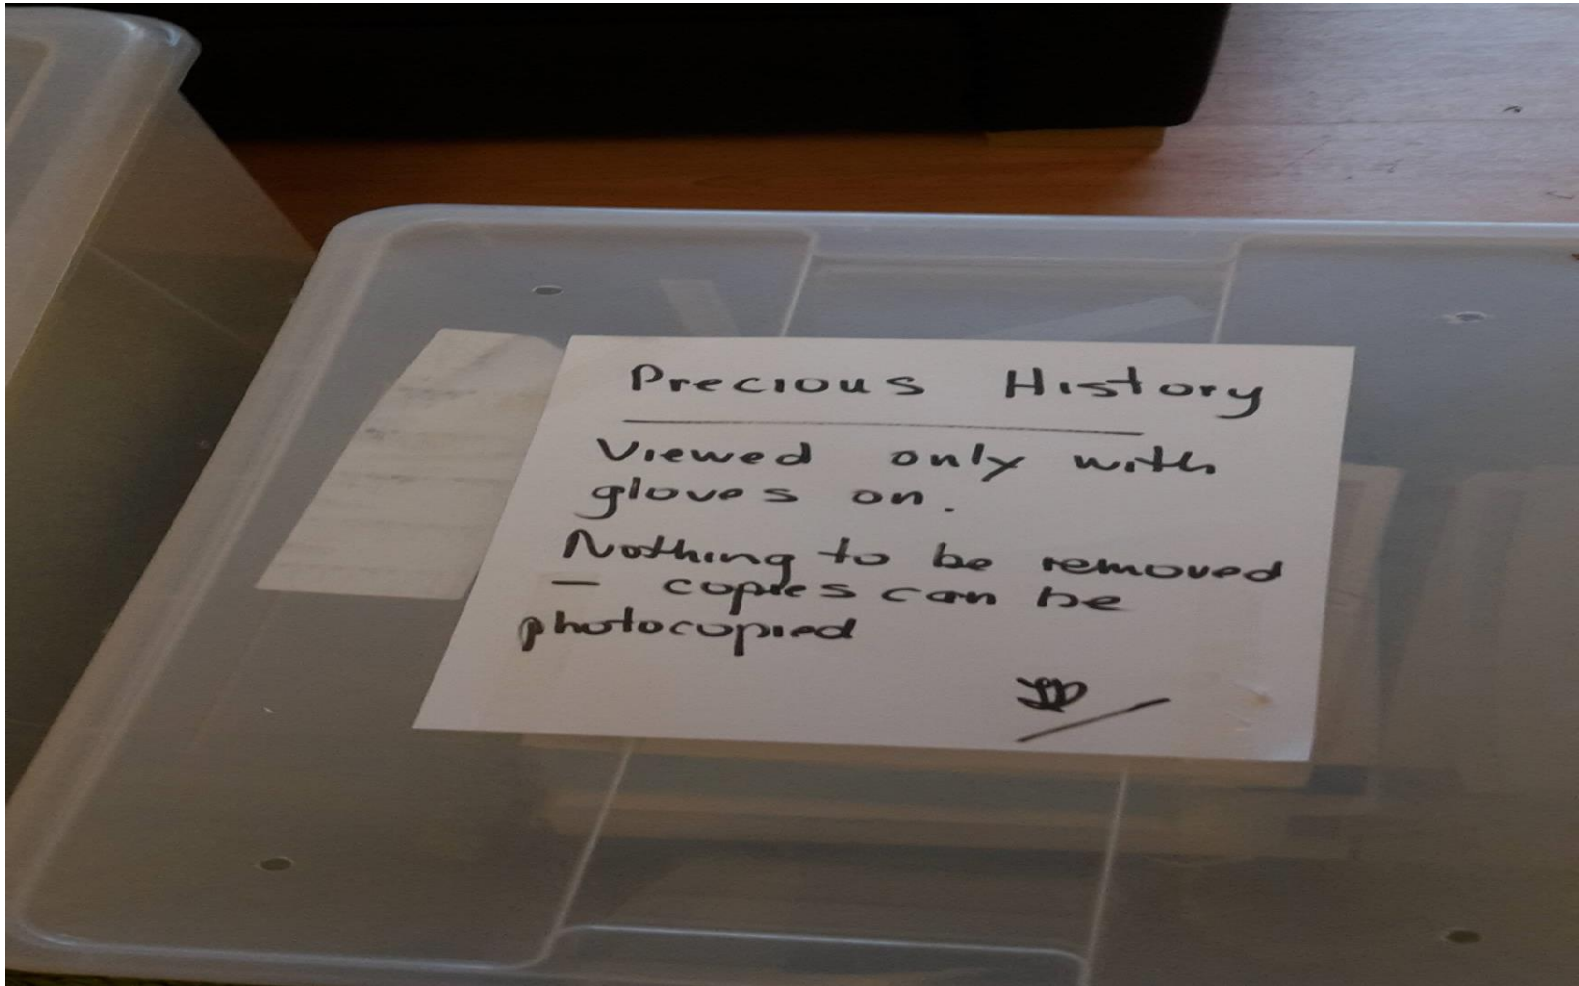 Precious History
Viewed only with
gloves on.
Nothing to be removed
– copies can be
photocopied